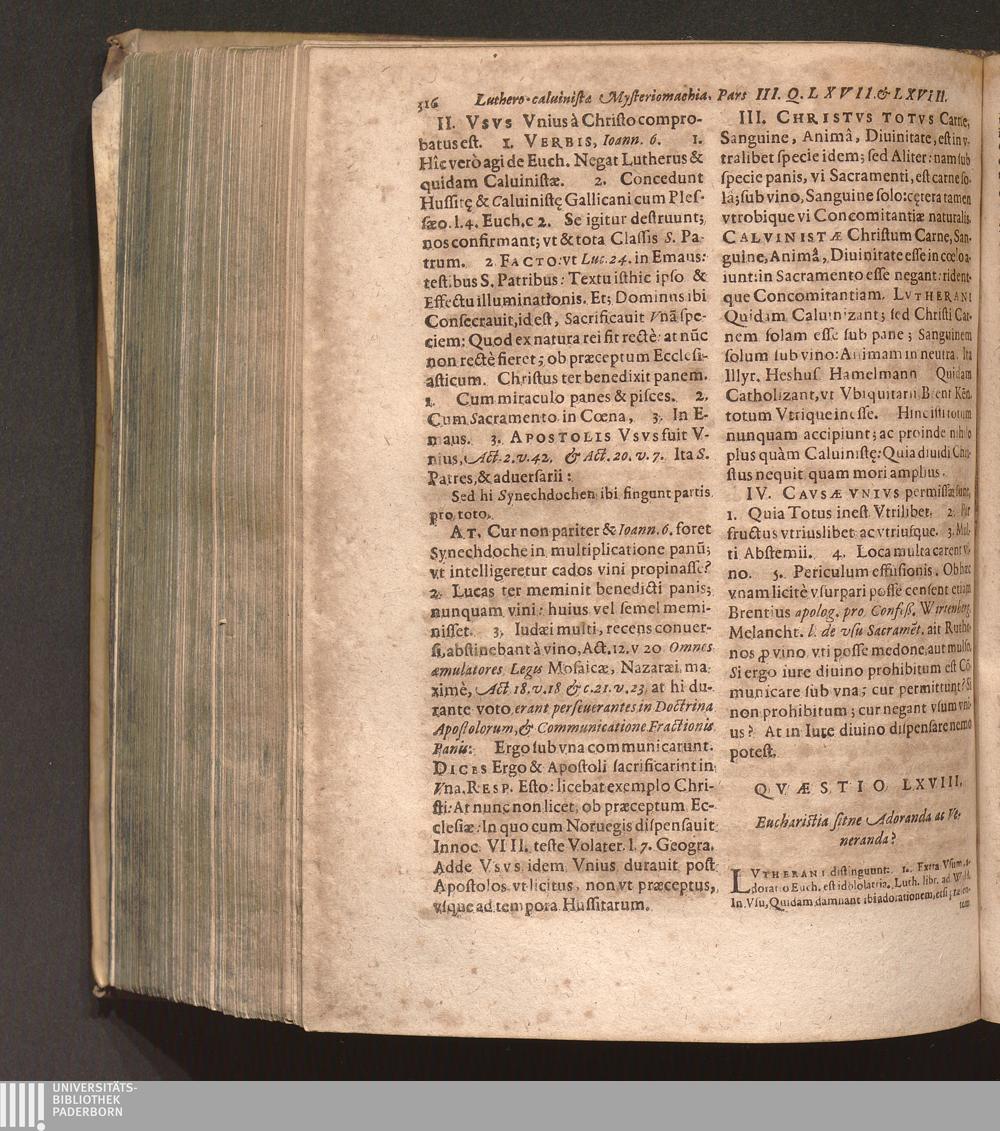 316 Luthero-caluinista Mysteriomachia. Pars III. Q. LXVII. & LXVIII.
II. VSVS Vnius à Christo compro-
batus est. 1. VERBIS, Ioann. 6. 1.
Hîc verò agi de Euch. Negat Lutherus &
quidam Caluinistæ. 2. Concedunt
Hussitę & Caluinistę Gallicani cum Ples-
sæo. l. 4. Euch. c 2. Se igitur destruunt;
nos confirmant; vt & tota Classis S. Pa-
trum. 2 FACTO: vt Luc. 24. in Emaus:
testibus S. Patribus: Textu isthic ipso &
Effectu illuminationis. Et; Dominus ibi
Consecrauit, id est, Sacrificauit Vnã spe-
ciem: Quod ex natura rei fit rectè: at nũc
non rectè fieret; ob præceptum Ecclesi-
asticum. Christus ter benedixit panem.
1. Cum miraculo panes & pisces. 2.
Cum Sacramento in Cœna, 3. In E-
maus. 3. APOSTOLIS VSVS fuit V-
nius, Act. 2. v. 42. & Act. 20. v. 7. Ita S.
Patres, & aduersarii:
Sed hi Synechdochen ibi fingunt partis
pro toto.
AT. Cur non pariter & Ioann. 6. foret
Synechdoche in multiplicatione panũ;
vt intelligeretur cados vini propinasse?
2. Lucas ter meminit benedicti panis;
nunquam vini: huius vel semel memi-
nisset. 3. Iudæi multi, recens conuer-
si, abstinebant à vino, Act. 12. v 20 Omnes
æmulatores Legis Mosaicæ, Nazaræi ma-
ximè, Act 18. v. 18 & c. 21. v. 23 at hi du-
rante voto erant perseuerantes in Doctrina
Apostolorum, & Communicatione Fractionis
Panis: Ergo sub vna communicarunt.
DICES Ergo & Apostoli sacrificarint in
Vna. RESP. Esto: licebat exemplo Chri-
sti: At nunc non licet, ob præceptum Ec-
clesiæ: In quo cum Noruegis dispensauit
Innoc. VIII. teste Volater. l. 7. Geogra.
Adde VSVS idem Vnius durauit post
Apostolos vt licitus, non vt præceptus,
vsque ad tempora Hussitarum.
III. CHRISTVS TOTVS Carne,
Sanguine, Animâ, Diuinitate, est in v-
tralibet specie idem; sed Aliter: nam sub
specie panis, vi Sacramenti, est carne so-
lâ; sub vino, Sanguine solo: cętera tamen
vtrobique vi Concomitantiæ naturalis.
CALVINISTÆ Christum Carne, San-
guine, Animâ, Diuinitate esse in cœlo a-
iunt: in Sacramento esse negant: rident-
que Concomitantiam. LVTHERANI
Quidam Caluinizant; sed Christi Car-
nem solam esse sub pane; Sanguinem
solum sub vino: Animam in neutra. Ita
Illyr. Heshus Hamelmann Quidam
Catholizant, vt Vbiquitarii Brent Kẽn.
totum Vtrique inesse. Hinc isti totum
nunquam accipiunt; ac proinde nihilo
plus quàm Caluinistę: Quia diuidi Chri-
stus nequit quam mori amplius.
IV. CAVSÆ VNIVS permissæ sunt,
1. Quia Totus inest Vtrilibet. 2. Par
fructus vtriuslibet ac vtriusque. 3. Mul-
ti Abstemii. 4. Loca multa carent vi-
no. 5. Periculum effusionis. Ob hæc
vnam licitè vsurpari posse censent etiam
Brentius apolog. pro Confess. Wirtenberg.
Melancht. l. de vsu Sacramẽt. ait Ruthe-
nos ꝓ vino vti posse medone, aut mulso.
Si ergo iure diuino prohibitum est Cõ-
municare sub vna; cur permittunt? Si
non prohibitum; cur negant vsum vni-
us? At in Iure diuino dispensare nemo
potest.
QVÆSTIO LXVIII.
Eucharistia sitne Adoranda ac Ve-
neranda?
LVTHERANI distinguunt: 1. Extra Vsum, A-
doratio Euch. est idololatria. Luth. libr. ad Wald.
In Vsu, Quidam damnant ibi adorationem, etsi
tum
UNIVERSITÄTS-
BIBLIOTHEK
PADERBORN